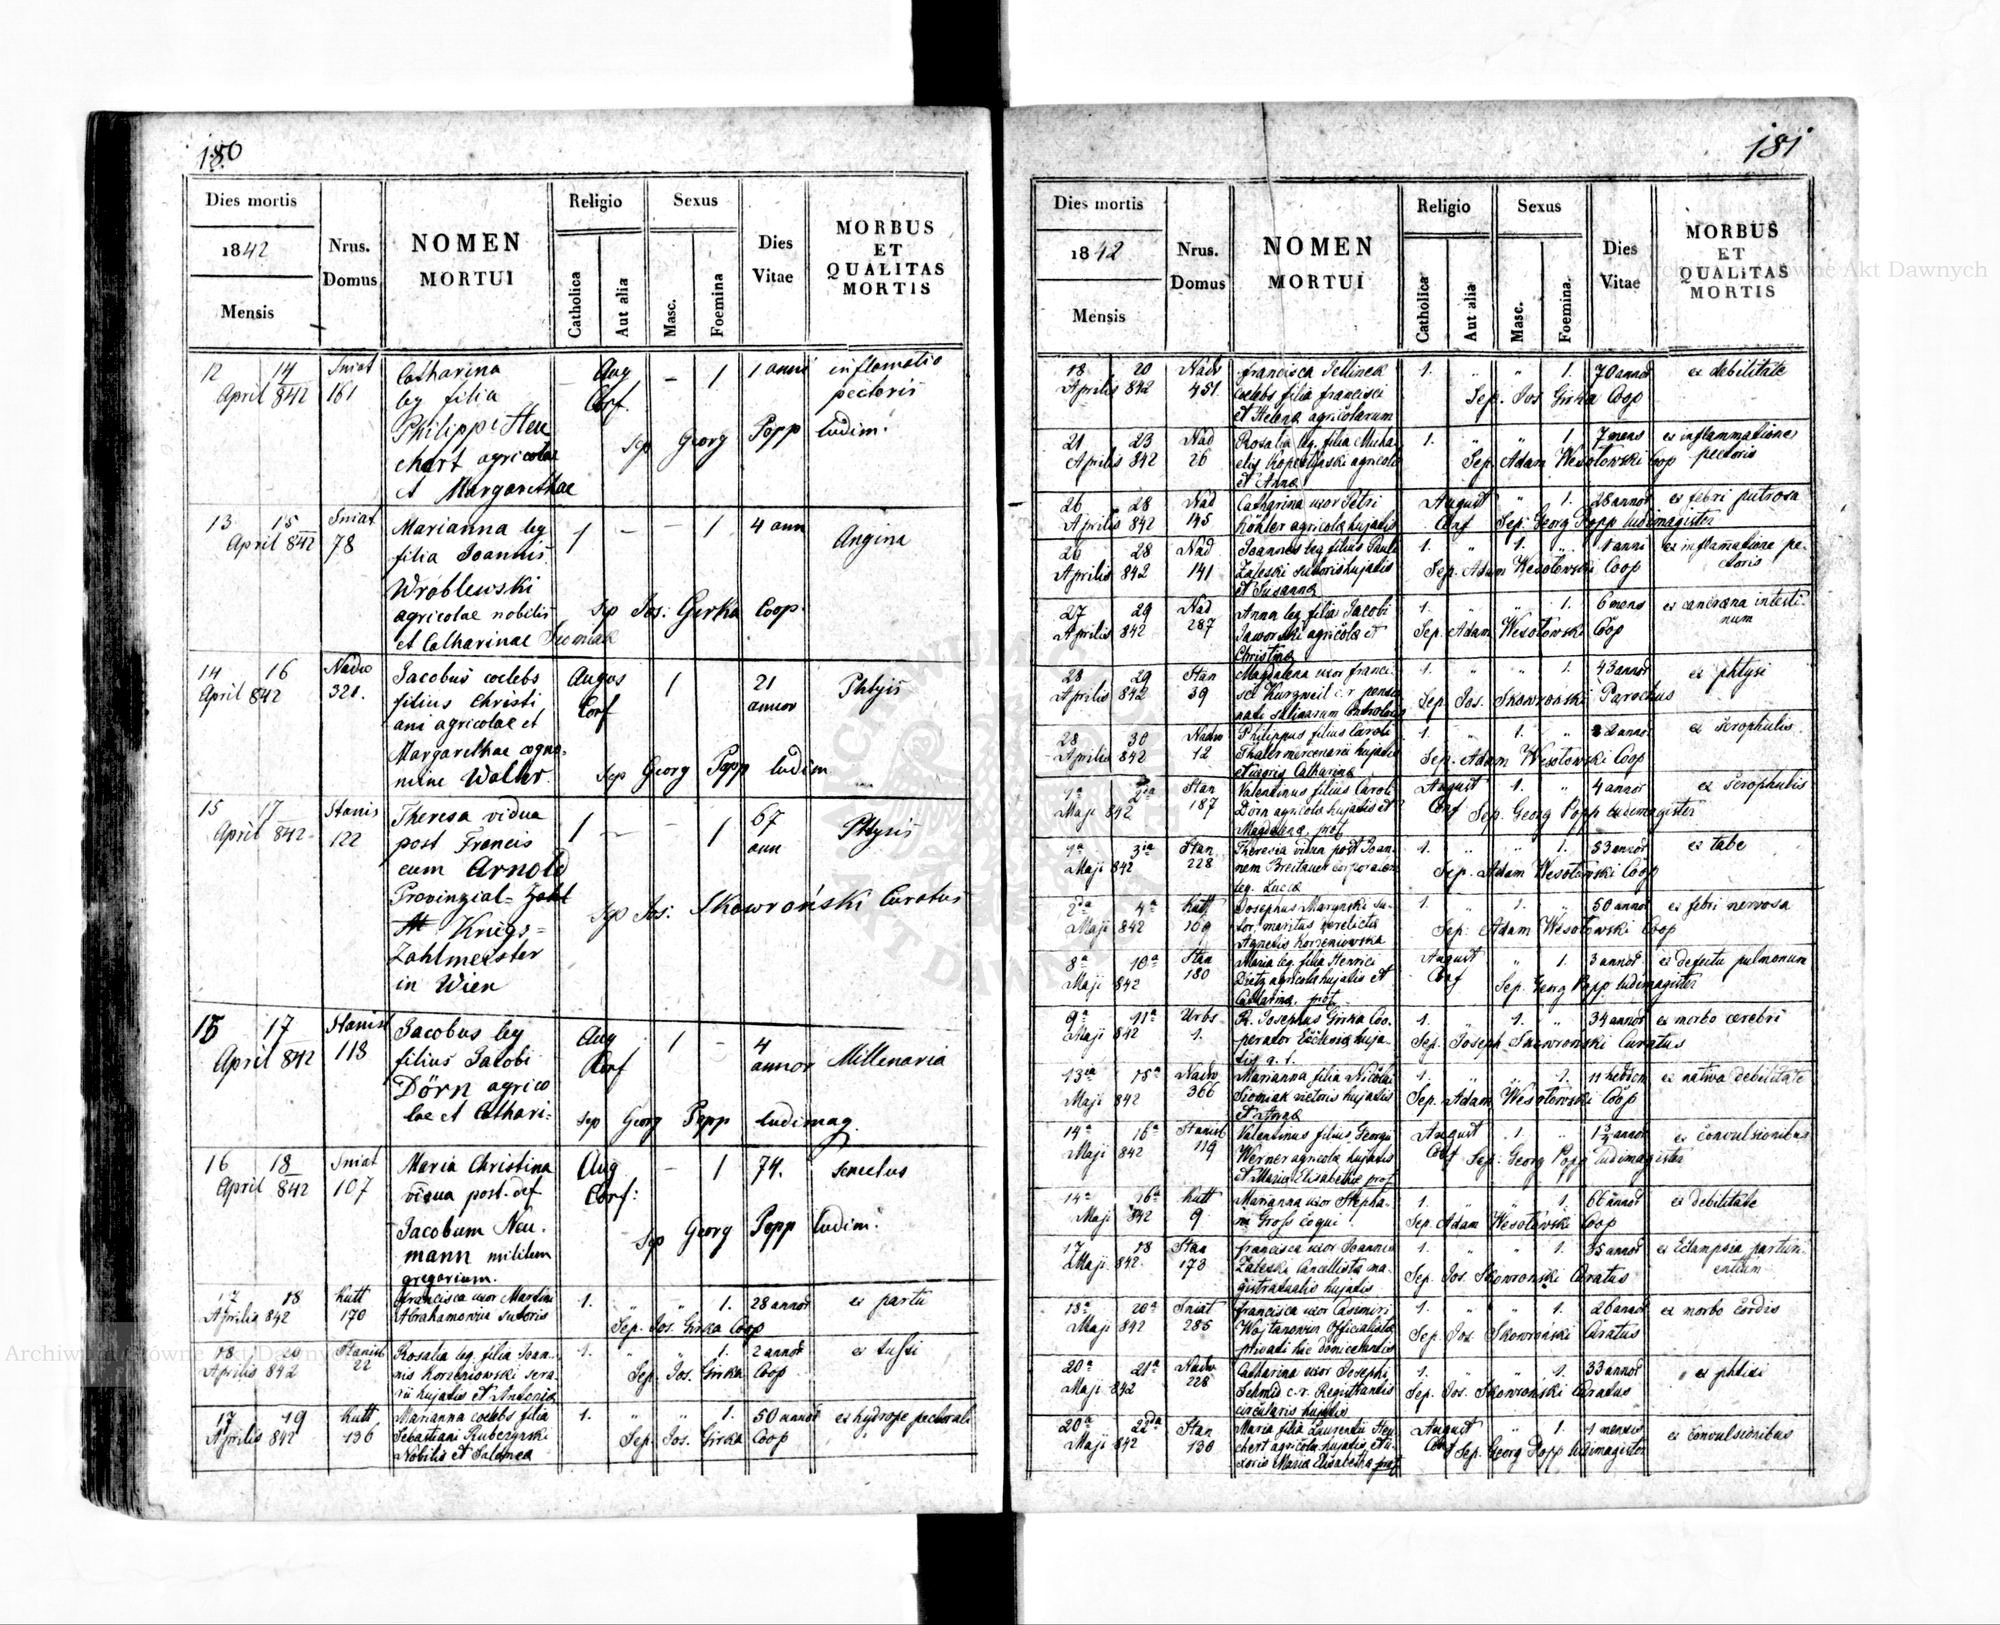 180
Dies mortis
1842
Mensis
Nrus.
Domus
NOMEN
MORTUI
Religio
Catholica
Aut alia
Sexus
Masc.
Foemina
Dies
Vitae
MORBUS
ET
QUALITAS
MORTIS
12 14 Sniat Catharina Aug – 1 1 anni inflamatio
April 842 161 leg filia Conf. pectoris
Philippi Heu
chert agricolae Sep Georg Popp ludim.
et Margarethae
13 15 Sniat Marianna leg 1 – – 1 4 ann Angina
April 842 78 filia Joannis
Wroblewski
agricolae nobilis Sep Jos: Girka Coop.
et Catharinae
14 16 Nadw Jacobus coelebs Augus 1 21 Phtysis
April 842 321. filius Christi Conf annor
ani agricolae et
Margarethae cogno-
mine Walter Sep Georg Popp ludim
15 17 Stanis Theresa vidua 1 – – 1 67 Phtysis
April 842 122 post Francis ann
cum Arnold
Provinzial-Zahl
Kriegs= Sep Jos: Skowroński Curatus
Zahlmeister
in Wien
15 17 Stanisl Jacobus leg Aug 1 – 4 Millenaria
April 842 118 filius Jacobi Conf annor
Dörn agrico
lae et Cathari- Sep Georg Popp ludimag.
16 18 Sniat Maria Christina Aug – 1 74. senectus
April 842 107 vidua post. def Conf:
Jacobum Neu- Sep Georg Popp ludim.
mann militem
gregarium.
17 18 Kutt Francisca uxor Martini 1. " " 1. 28 annor ex partu
Aprilis 842 170 Abrahamowicz sutoris Sep. Jos. Girka Coop
18 20 Stanisl Rosalia leg. filia Joan- 1. " " 1. 2 annor ex tussi
Aprilis 842 22 nis Korzeniowski Sep. Jos. Girka Coop
hujatis et Antonia
17 19 Kutt Marianna coelebs filia 1. " " 1. 50 annor ex hydrope pectorali
Aprilis 842 136 Sebastiani Sep. Jos. Girka Coop
Nobilis et Salomea
181
Dies mortis
1842
Mensis
Nrus.
Domus
NOMEN
MORTUI
Religio
Catholica
Aut alia
Sexus
Masc.
Foemina.
Dies
Vitae
MORBUS
ET
QUALITAS
MORTIS
18 20 Nadw Francisca 1. " " 1. 70 annor ex debilitate
Aprilis 842 451 coelebs filia Francisci Sep. Jos Girka Coop
et Helena agricolarum
21 23 Nad Rosalia leg. filia Micha- 1. " " 1. 7 mens ex inflammatione
Aprilis 842 26 elis agricola Sep. Adam Wesołowski Coop pectoris
et Anna
26 28 Nad Catharina uxor Petri August " 1. 28 annor ex febri putrosa
Aprilis 842 145 Köhler agricola hujatis Conf Sep: Georg Popp ludimagister
26 28 Nad Joannes leg filius Pauli 1. " 1. " 1 anni ex inflamatione pe-
Aprilis 842 141 Zaleski sutoris hujatis Sep. Adam Wesołowski Coop ctoris
et Susanna
27 29 Nad Anna leg filia Jacobi 1. " " 1. 6 mens ex intesti-
Aprilis 842 287 Jaworski agricola et Sep. Adam Wesołowski Coop num
Christina
28 29 Stan Magdalena uxor Franci- 1. " " 1. 43 annor ex phtysi
Aprilis 842 39 sci Kurzweil c.r. pensio Sep. Jos. Skowronski Parochus
nati salinarum
28 30 Nadw Philippus filius Caroli 1. " 1. " 2 anni ex scrophulis
Aprilis 842 12 Thaler mercenarii hujatis Sep. Adam Wesołowski Coop
et uxoris Catharina
1a 2da Stan Valentinus filius Caroli August 1. " 4 annor ex scrophulis
Maji 842 187 Dörn agricola hujatis et Conf Sep. Georg Popp ludimagister
Magdalena, prof
1a 3ia Stan Theresia vidua post Joan- 1. " " 1. 53 annor ex tabe
Maji 842 228 nem Breitauer Sep. Adam Wesołowski Coop
leg. Lucia
2da 4a Kutt Josephus Marynski su- 1. " 1. " 50 annor ex febri nervosa
Maji 842 109 tor, maritus derelicta Sep: Adam Wesołowski Coop
Agnetis Korzeniowska
8a 10a Stan Maria leg. filia Henrici August " 1. 3 annor ex defectu pulmonum
Maji 842 180 Dietz agricola hujatis et Conf Sep. Georg Popp ludimagister
Catharina, prof.
9a 11a Urbs R. Josephus Girka Coo- 1. " 1. " 34 annor ex morbo cerebri
Maji 842 1. perator Ecclesia huja- Sep. Joseph Skowronski Curatus
tis
13ia 15a Nadw Marianna filia Nicolai 1. " " 1. 11 hebdom ex nativa debilitate
Maji 842 366 Siomiak hujatis Sep. Adam Wesołowski Coop
et Anna
14a 16a Stanisl Valentinus filius Georgii August 1. " annor ex convulsionibus
Maji 842 119 Werner agricola hujatis Conf Sep: Georg Popp ludimagister
et Maria Elisabetha prof
14a 16a Kutt Marianna uxor Stepha- 1. " " 1. 66 annor ex debilitate
Maji 842 9 ni Gross coqui Sep. Adam Wesołowski Coop
17 18 Stan Francisca uxor Joannis 1. " " 1. 35 annor ex Eclampsia parturi-
Maji 842 173 Zaleski Cancellista ma- Sep. Jos. Skowronski Curatus entium
gistratualis hujatis
18a 20a Sniat Francisca uxor Casimiri 1. " " 1. 26 annor ex morbo cordis
Maji 842 285 Wojtanowicz Officialista Sep. Jos. Skowroński Curatus
privati hic domiciliantis
20a 21a Nadw Catharina uxor Josephi 1. " " 1. 33 annor ex phtisi
Maji 842 228 Schmid c.r. Registrantis Sep. Jos. Skowronski Curatus
circularis hujatis
20a 22da Stan Maria filia Laurentii Heu August " 1. 1 mensis ex convulsionibus
Maji 842 130 chert agricola hujatis, et u- Conf Sep. Georg Popp ludimagister
xoris Maria Elisabetha prof
Archiwum Główne Akt Dawnych
Archiwum Główne Akt Dawnych
ARCHIWUM GŁÓWNE
AKT DAWNYCH